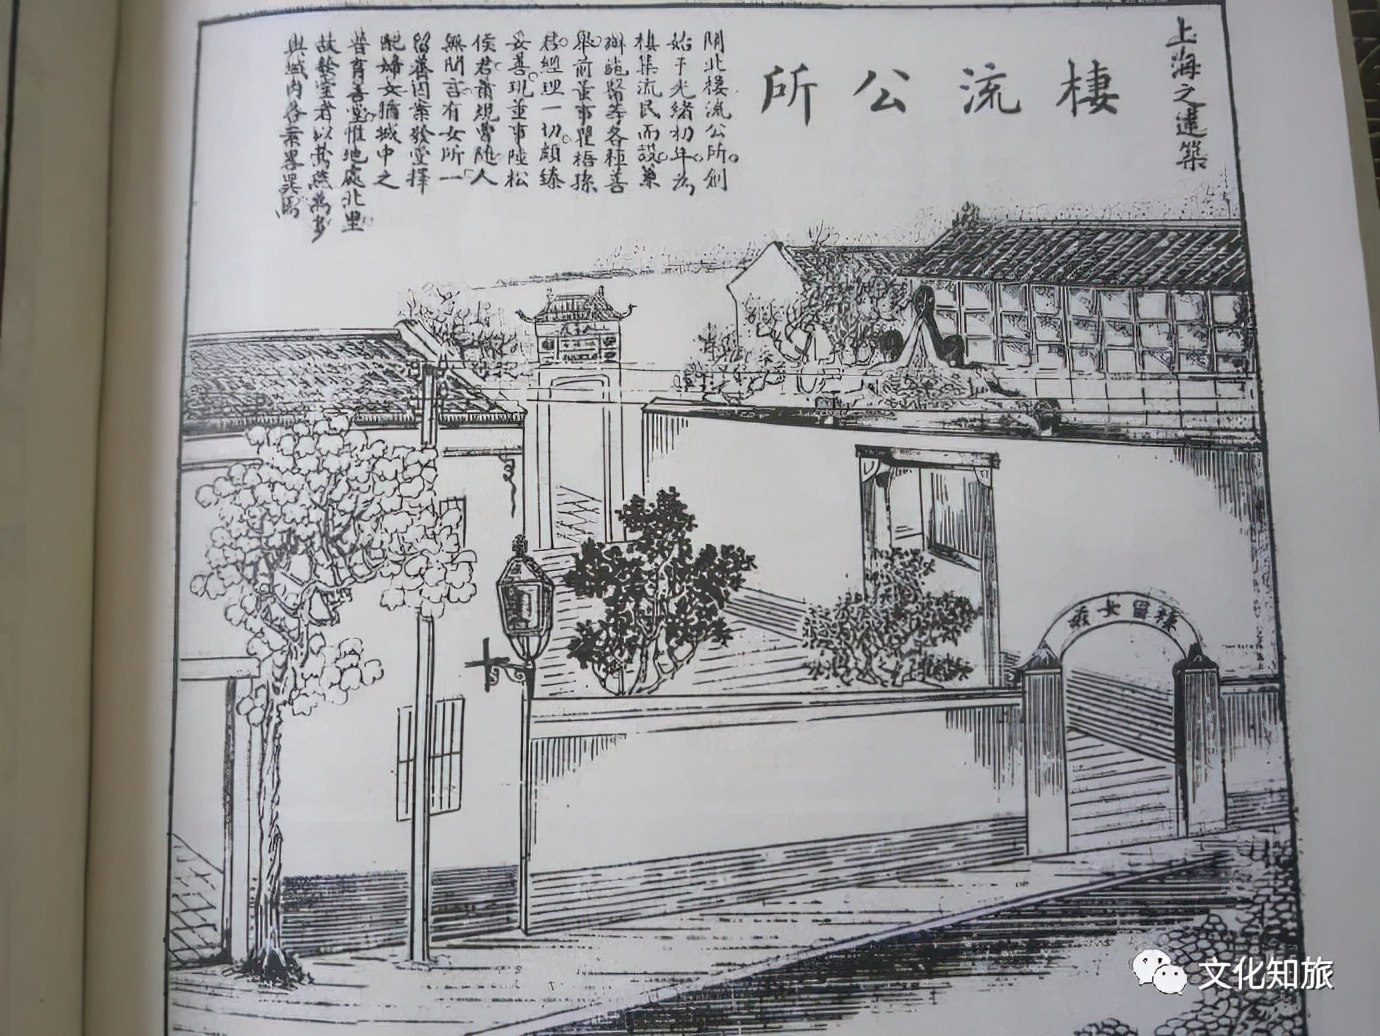 上海之建築
棲流公所
閘北棲流公所。創
始于光緒初年。為
棲集流民而設。兼
辦施醫等各種善
舉。前董事瞿梧孫
君。經理一切。頗臻
妥善。現董事陸松
侯君。蕭規曹隨。人
無閒言。有女所一
留養因案發堂擇
配婦女。猶城中之
普育善堂。惟地處北里
故發堂者以燕為多
與城內各案畧異焉
留女
文化知旅